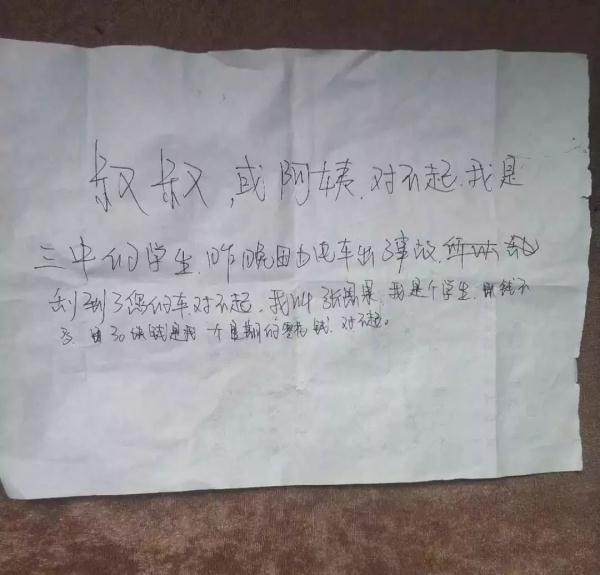 叔叔,或阿姨.对不起.我是
三中的学生.昨晚因为电车出了事故.所以
刮到了您的车.对不起.我叫张国果.我是个学生.钱不
多.30块钱是我一个星期的零花钱.对不起。